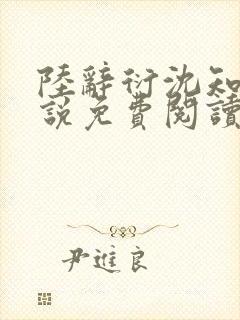 陸辭衍沈知
說免費閱讀
尹進良